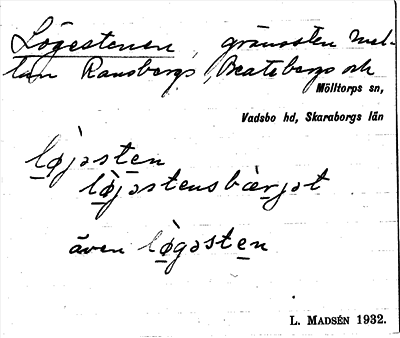 Lögestenen, gränssten mel-
lan Ransbergs, Beatebergs och
Mölltorps sn,
Vadsbo hd, Skaraborgs län
lø̀jəsten
lø̀jəstensbærjət
även lø̀gəsten
L. MADSÉN 1932.